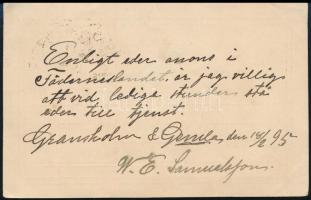 Enligt eder anons i
Fäderneslandet, är jag villig
att vid lediga stunder stå
eder till tjenst.
Gransholm & Gemla den 14/6 95
W. E. Samuelsson.